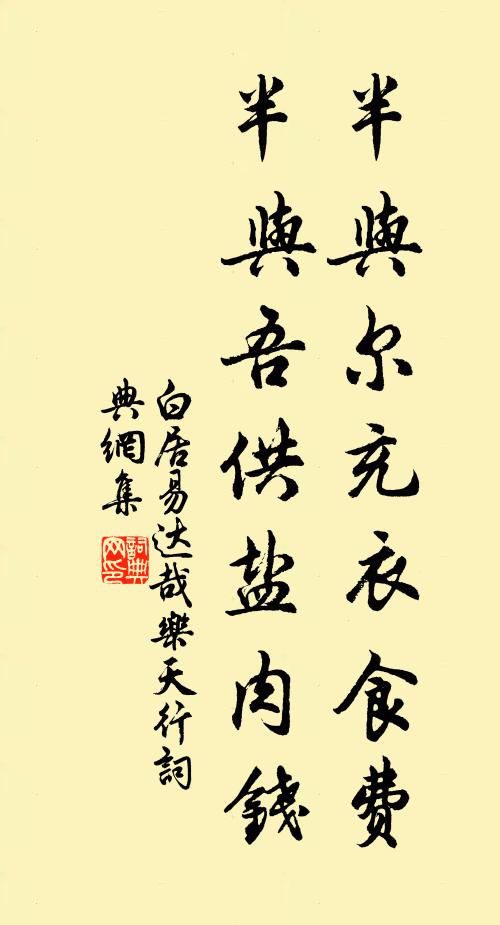 半與尔充衣食費
半與吾供盐肉錢
白居易达哉樂天行詞
典網集
詞典网印